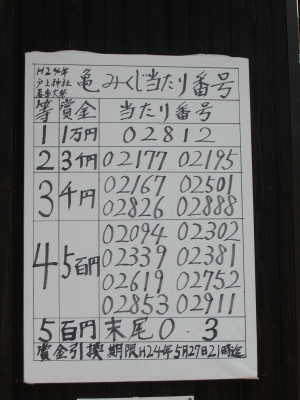 H24年
戸上神社
亀みくじ当たり番号
等 賞金 当たり番号
1 1万円 02812
2 3千円 02177 02195
3 千円 02167 02501
02826 02888
4 5百円 02094 02302
02339 02381
02619 02752
02853 02911
5 百円 末尾0.3
賞金引換期限H24年5月27日21時迄